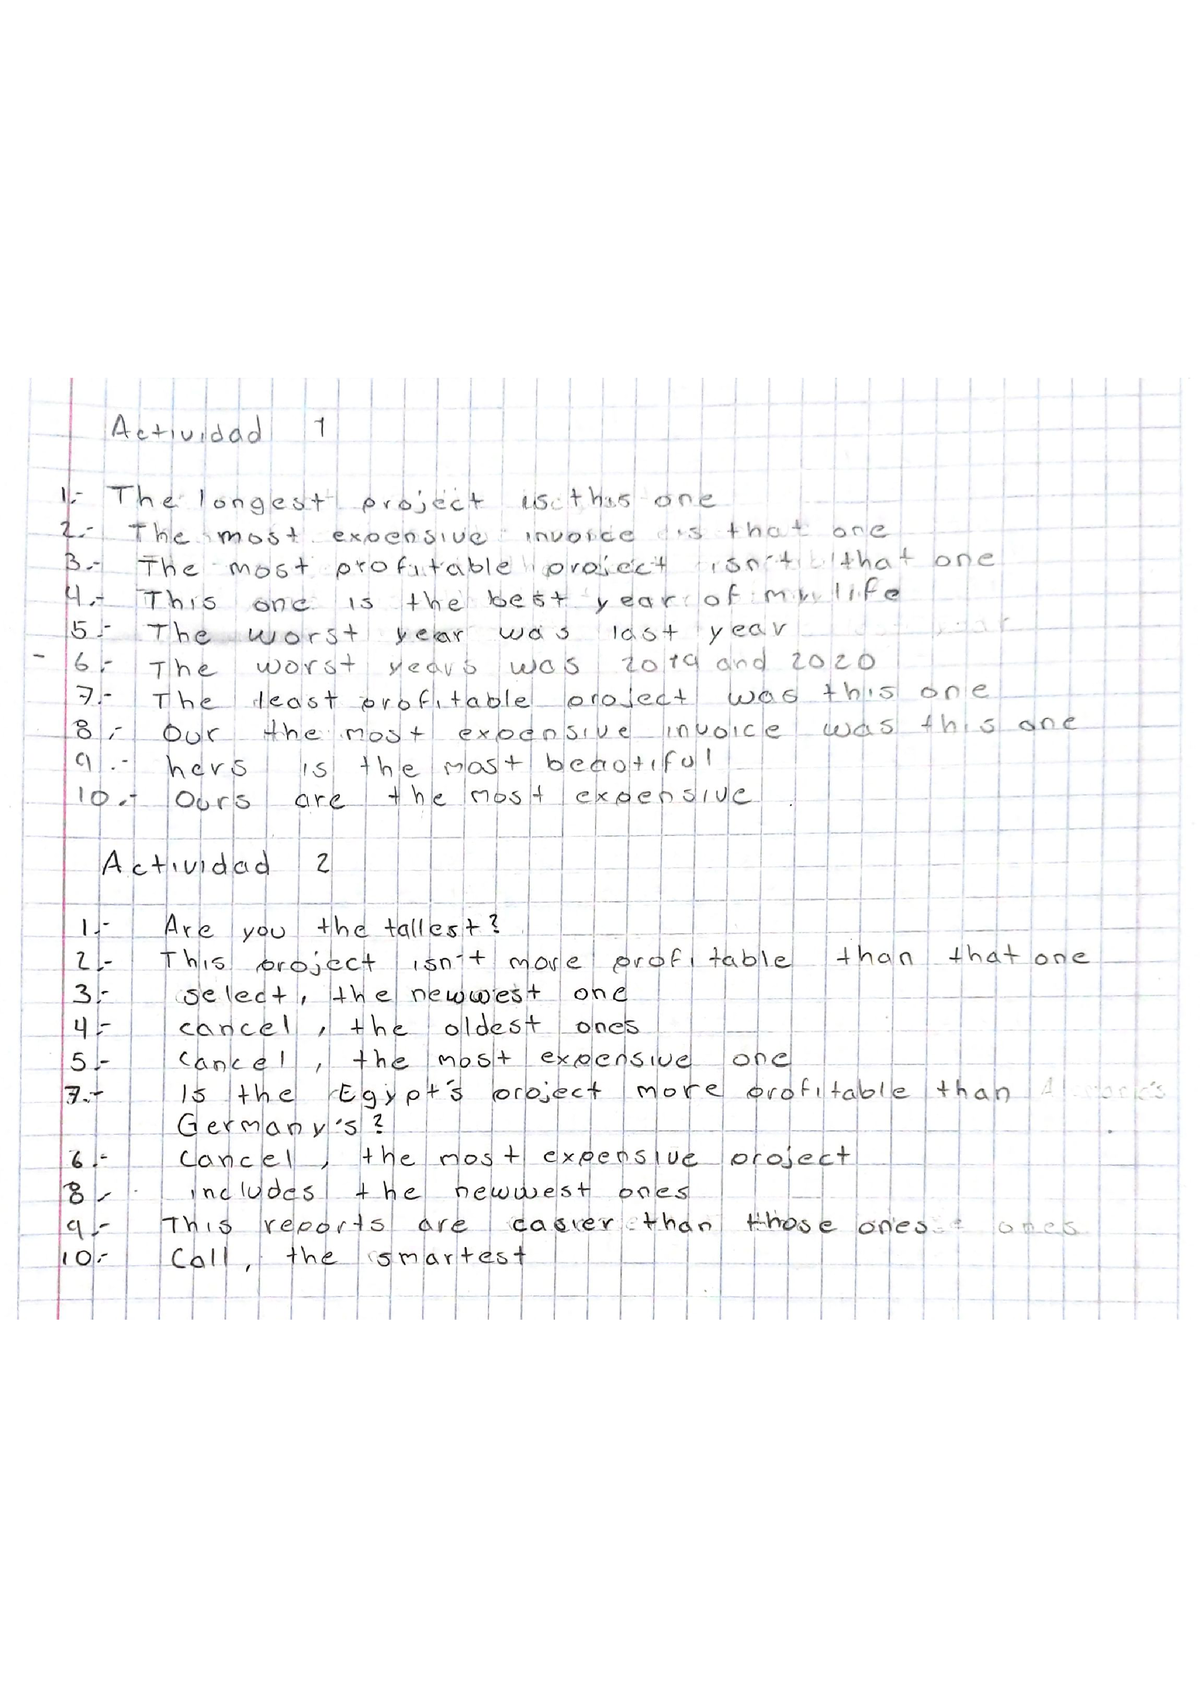 Actividad 1
1.- The longest project is this one
2.- The most expensive invoice is that one
3.- The most profitable project isn't that one
4.- This one is the best year of my life
5.- The worst year was last year
- 6.- The worst years was 2019 and 2020
7.- The least profitable project was this one
8.- Our the most expensive invoice was this one
9.- hers is the most beautiful
10.- Ours are the most expensive
Actividad 2
1.- Are you the tallest?
2.- This project isn't more profitable than that one
3.- select, the newwest one
4.- cancel, the oldest ones
5.- cancel, the most expensive one
7.- Is the Egypt's project more profitable than
Germany's?
6.- Cancel, the most expensive project
8.- includes the newwest ones
9.- This reports are easier than those ones ones
10.- Call, the smartest